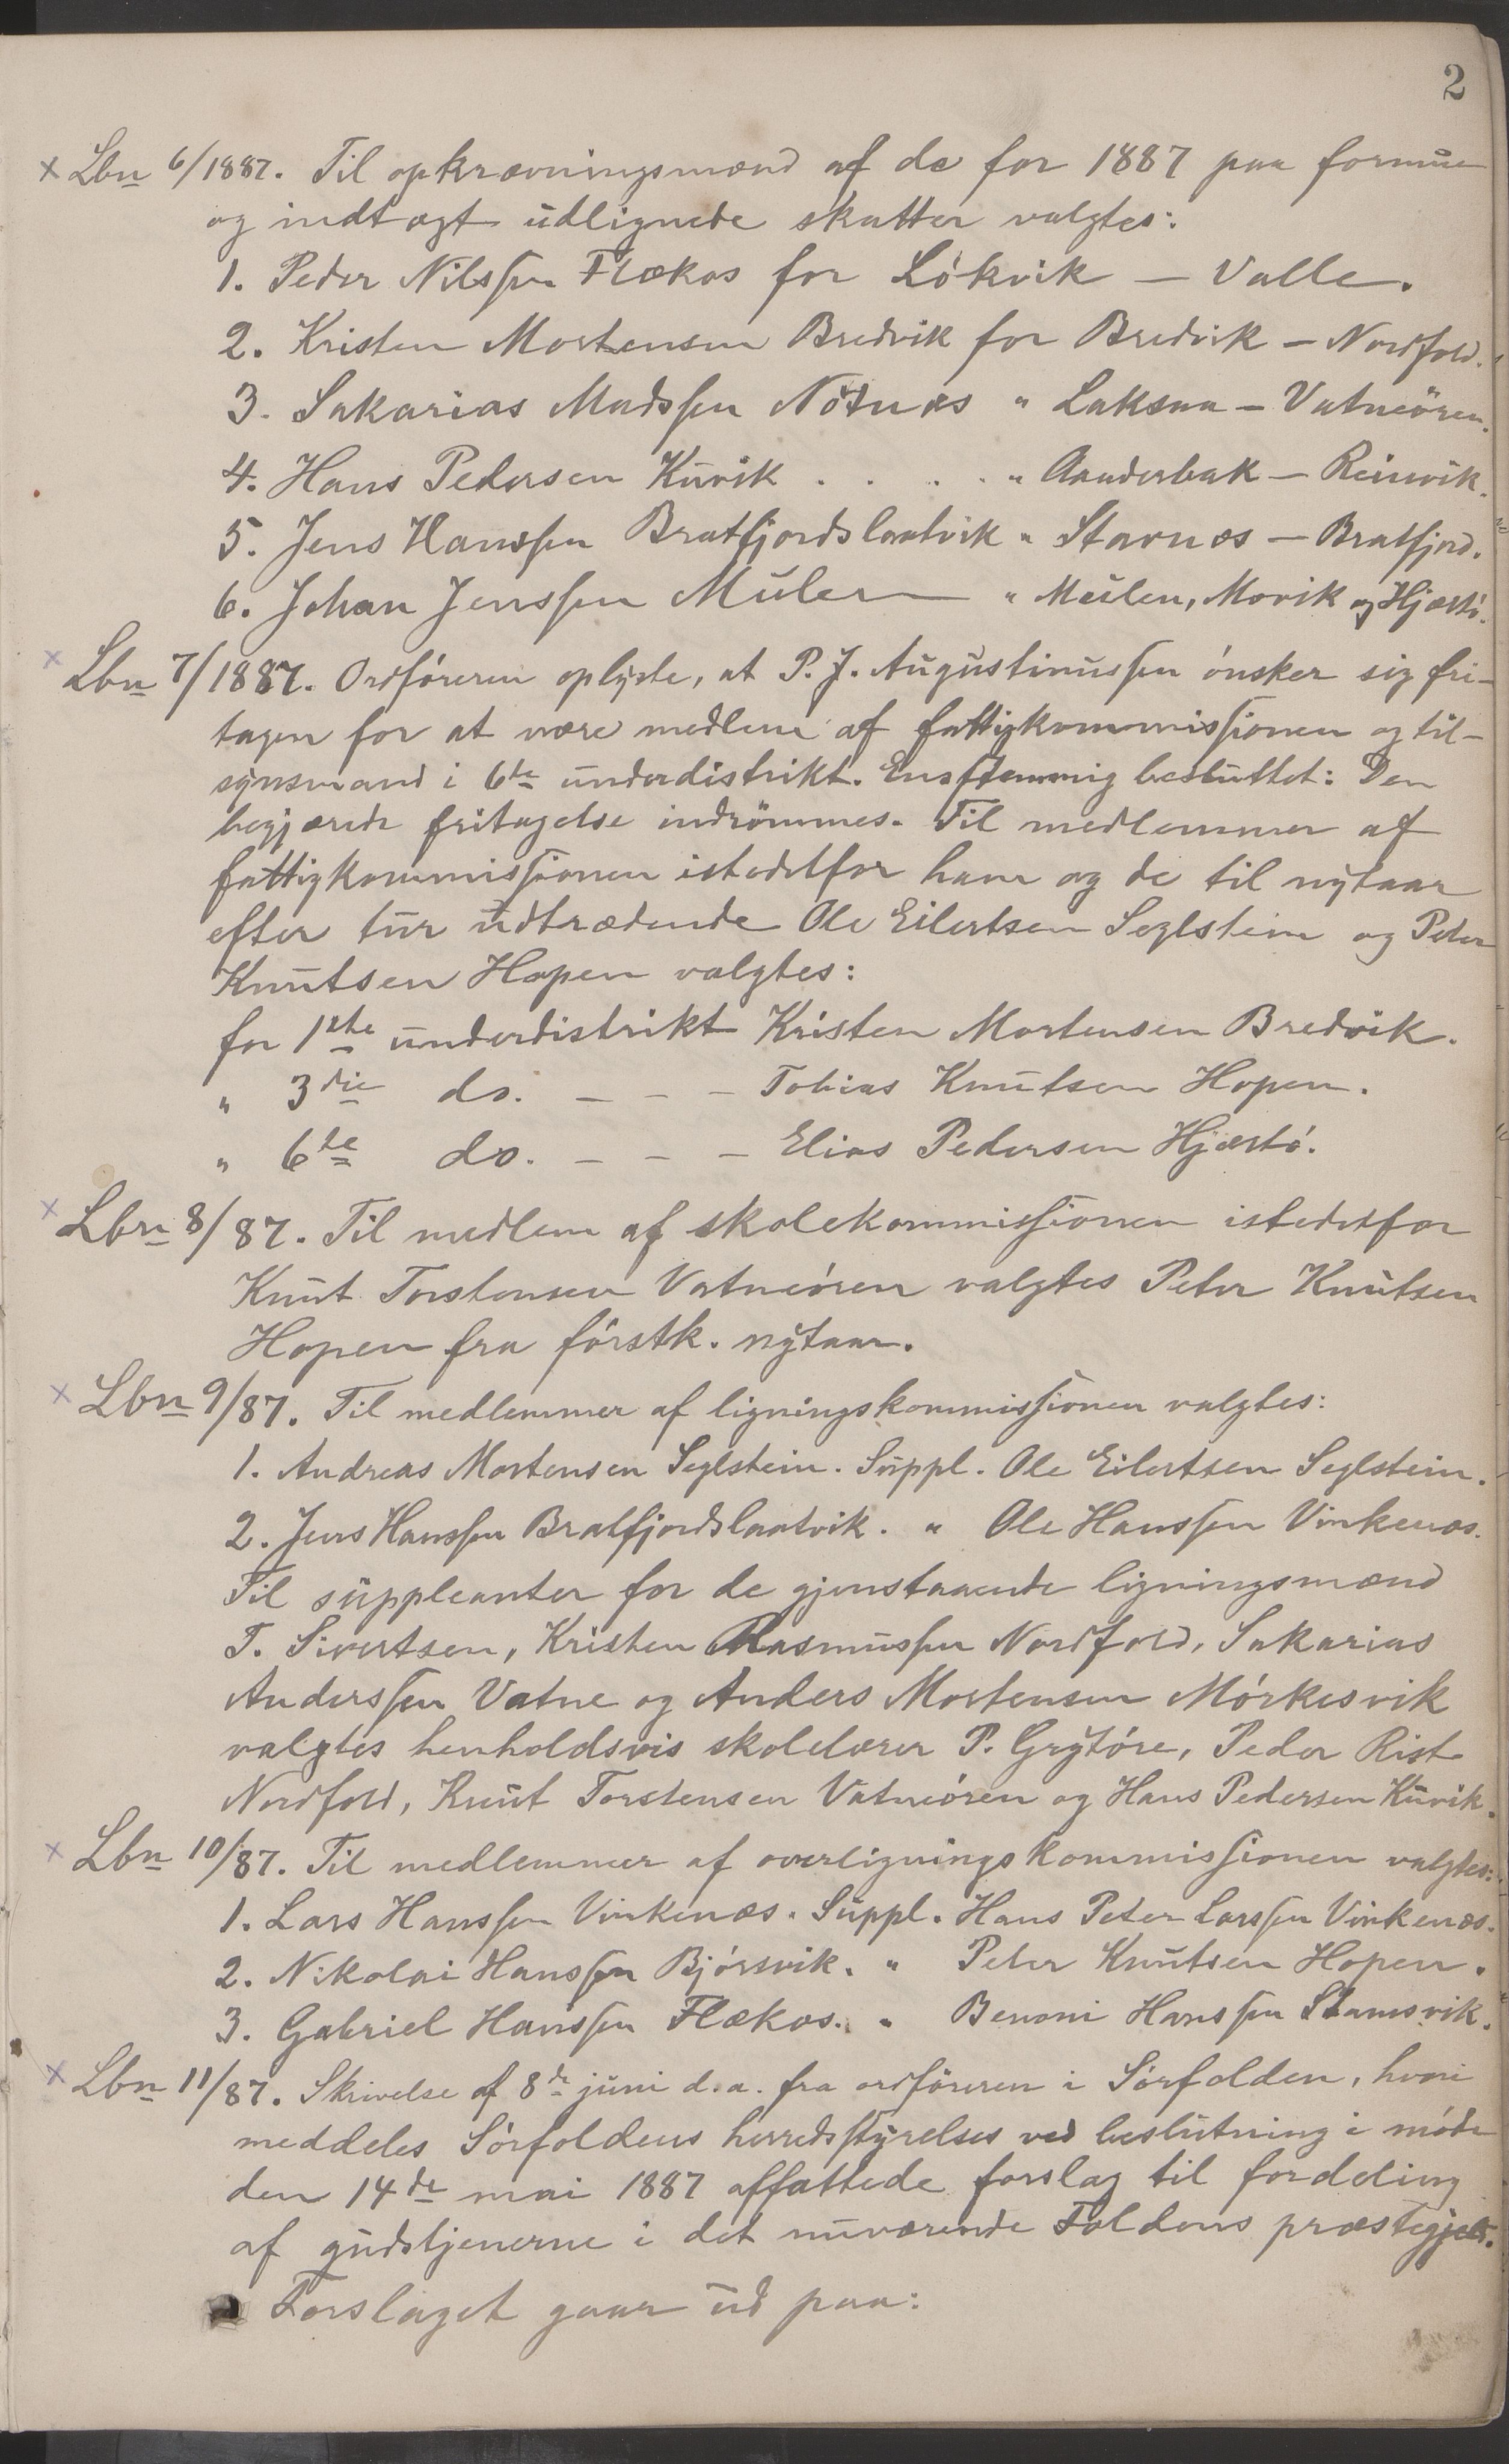 2
× Lbn 6/1887. Til opkrævningsmænd af de for 1887 paa formue
og indtægt udlignede skatter valgtes:
1. Peder Nilsſen Flækos for Lökvik – Valle.
2. Kristen Mortensen Bredvik for Bredvik – Nordfold.
3. Sakarias Madsſen Nötnæs " Laksaa – Vatneören.
4. Hans Pedersen Kuvik . . . . " Aanderbak – Reinvik.
5. Jens Hansſen Bratfjordslaatvik " Stavnæs – Bratfjord.
6. Johan Jensſen Mulen " Mulen, Movik og Hjærtö.
× Lbn 7/1887. Ordföreren oplyste, at P. J. Augustinusſen önsker sig fri-
tagen for at være medlem af fattigkommisſionen og til-
synsmand i 6te underdistrikt. Ensſtemmig besluttet: Den
begjærede fritagelse indrömmes. Til medlemmer af
fattigkommisſionen istedetfor ham og de til nytaar
efter tur udtrædende Ole Eilertsen Seglstein og Peter
Knutsen Hopen valgtes:
for 1ste underdistrikt Kristen Mortensen Bredvik.
" 3die do. – – – Tobias Knutsen Hopen.
" 6te do. – – – Elias Pedersen Hjærtö.
× Lbn 8/87. Til medlem af skolekommisſionen istedetfor
Knut Torstensen Vatneören valgtes Peter Knutsen
Hopen fra förstk. nytaar.
× Lbn 9/87. Til medlemmer af ligningskommisſionen valgtes:
1. Andreas Mortensen Seglstein. Suppl. Ole Eilertsen Seglstein.
2. Jens Hansſen Bratfjordslaatvik. " Ole Hansſen Vinkenæs.
Til suppleanter for de gjenstaaende ligningsmænd
T. Sivertsen, Kristen Rasmusſen Nordfold, Sakarias
Andersſen Vatne og Anders Mortensen Mörkesvik
valgtes henholdsvis skolelærer P. Grytöre, Peder Rist
Nordfold, Knut Torstensen Vatneören og Hans Pedersen Kuvik.
× Lbn 10/87. Til medlemmer af overligningskommisſionen valgtes:
1. Lars Hansſen Vinkenæs. Suppl. Hans Peter Larsſen Vinkenæs.
2. Nikolai Hansſen Bjórsvik. " Peter Knutsen Hopen.
3. Gabriel Hansſen Flækos. " Benoni Hansſen Stamsvik.
× Lbn 11/87. Skrivelse af 8de juni d.a. fra ordföreren i Sörfolden, hvori
meddeles Sörfoldens herredsſtyrelses ved beslutning i möde
den 14de mai 1887 affattede forslag til fordeling
af gudstjenerne i det nuværende Foldens præstegjeld.
Forslaget gaar ud paa: